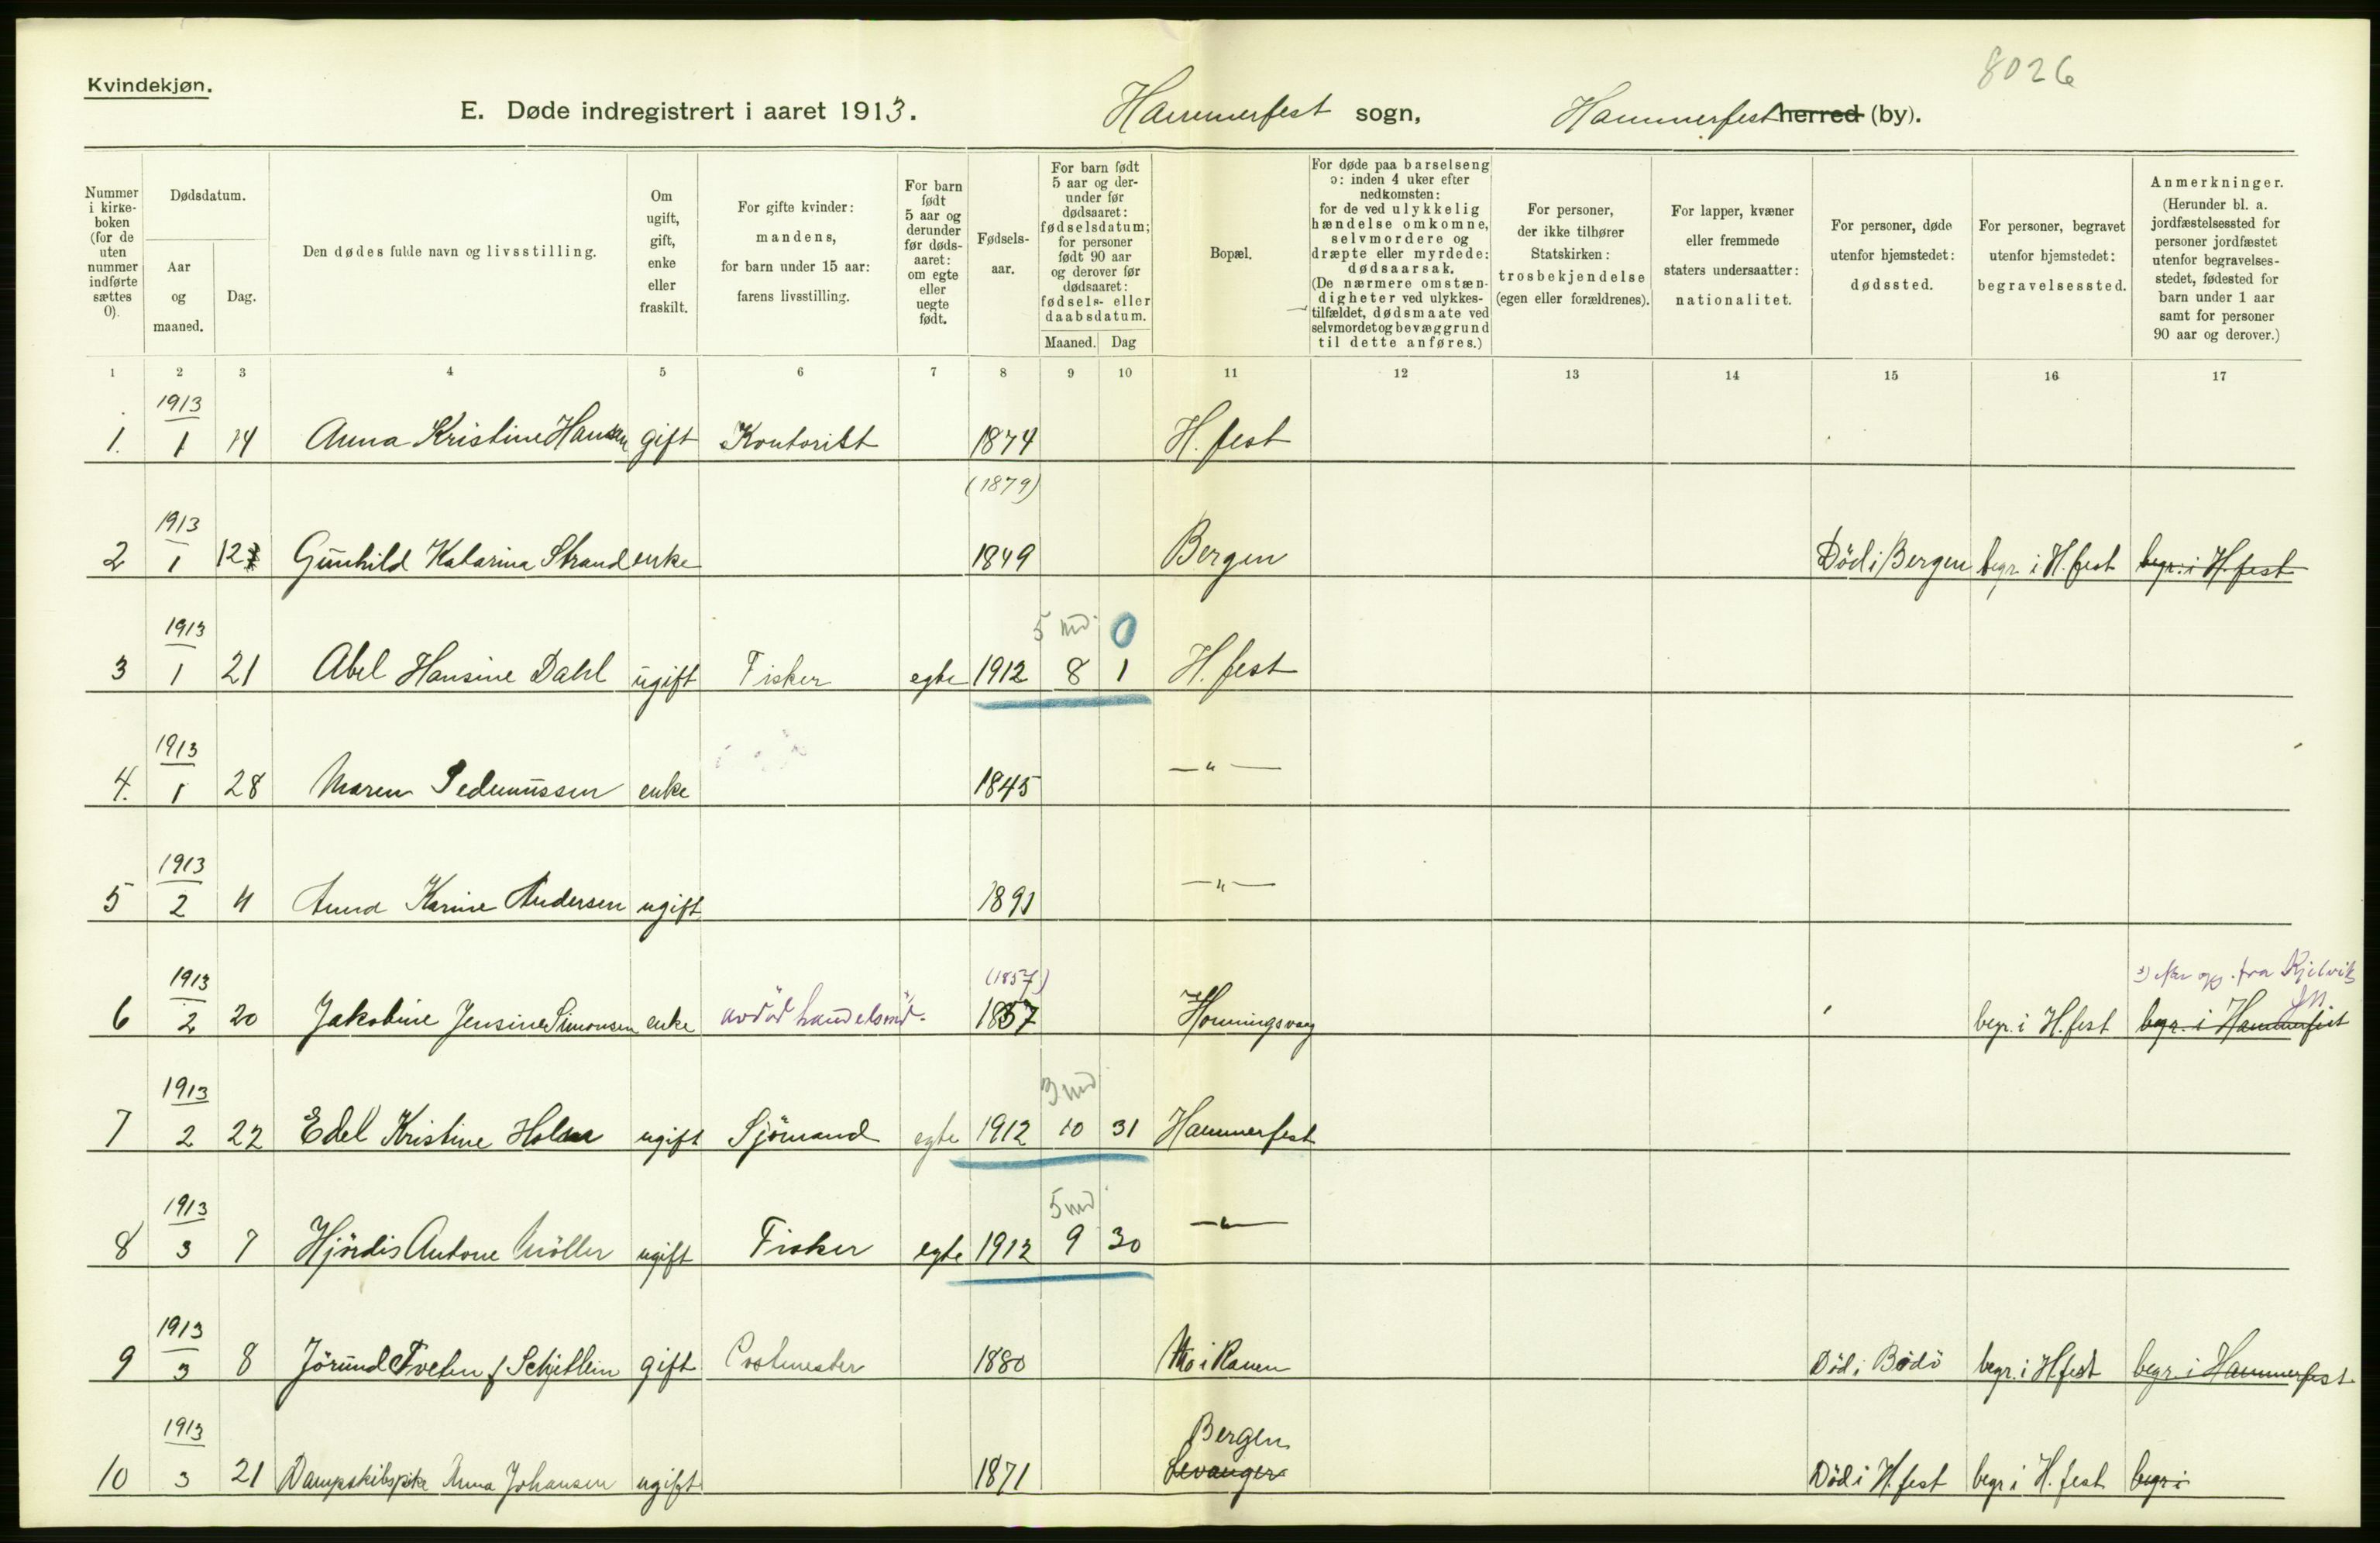 8026
Kvindekjøn.
E. Døde indregistrert i aaret 1913. Hammerfest sogn, Hammerfest herred (by).
Nummer i kirke- boken (for de uten nummer indførte sættes 0).
Dødsdatum.
Aar og maaned.
Dag.
Den dødes fulde navn og livsstilling.
Om ugift, gift, enke eller fraskilt.
For gifte kvinder: mandens, for barn under 15 aar: farens livsstilling.
For barn født 5 aar og derunder før døds- aaret: om egte eller uegte født.
Fødsels- aar.
For barn født 5 aar og der- under før dødsaaret: fødselsdatum; for personer født 90 aar og derover før dødsaaret: fødsels- eller daabsdatum.
Maaned. Dag
Bopæl.
For døde paa barselseng ɔ: inden 4 uker efter nedkomsten: for de ved ulykkelig hændelse omkomne, selvmordere og dræpte eller myrdede: dødsaarsak. (De nærmere omstæn- digheter ved ulykkes- tilfældet, dødsmaate ved selvmordet og bevæggrund til dette anføres.)
For personer, der ikke tilhører Statskirken: trosbekjendelse (egen eller forældrenes).
For lapper, kvæner eller fremmede staters undersaatter: nationalitet.
For personer, døde utenfor hjemstedet: dødssted.
For personer, begravet utenfor hjemstedet: begravelsessted.
Anmerkninger. (Herunder bl. a. jordfæstelsessted for personer jordfæstet utenfor begravelses- stedet, fødested for barn under 1 aar samt for personer 90 aar og derover.)
1 2 3 4 5 6 7 8 9 10 11 12 13 14 15 16 17
1913
1. 1 14 Anna Kristine Hansen gift Kontorist 1874 H.fest
(1879)
1913
2 1 12 Gunhild Katarina Strand enke 1849 Bergen Död i Bergen begr. i H.fest begr. i H.fest
1913 5 md. 0
3 1 21 Abel Hansine Dahl ugift Fisker egte 1912 8 1 H.fest
1913
4. 1 28 Maren Pedersen enke 1845 —"—
1913
5 2 4 Anna Karine Andersen ugift 1891 —"—
1913 (1857) fra Kjelvik
6 2 20 Jakobine Jensine Simonsen enke avdöd handelsmd. 1857 Honningsvaag begr. i H.fest begr. i Hammerfest
1913 3 md
7 2 22 Edel Kristine Holm ugift Sjömand egte 1912 10 31 Hammerfest
1913 5 md
8 3 7 Hjördis Antone Möller ugift Fisker egte 1912 9 30 —"—
1913
9 3 8 Jörund Tveten f Schjetlein gift Postmester 1880 Mo i Ranen Död i Bodö begr. i H.fest begr. i Hammerfest
1913 Bergen
10 3 21 Dampskibspike Anna Johansen ugift 1871 Levanger Död i H.fest begr i H.fest begr i